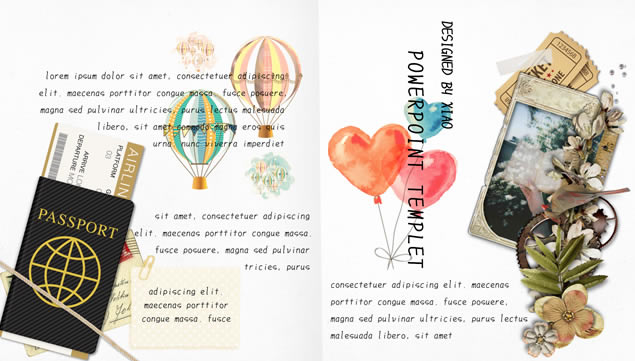 lorem ipsum dolor sit amet, consectetuer adipiscing
elit. maecenas porttitor congue massa. fusce posuere,
magna sed pulvinar ultricies, purus lectus malesuada
libero, sit amet commodo magna eros quis
urna. nunc viverra imperdiet
AIRLINE
PLATFORM
03
ARRIVE
DEPARTURE
PASSPORT
sit amet, consectetuer adipiscing
elit. maecenas porttitor congue massa.
fusce posuere, magna sed pulvinar
tricies, purus
adipiscing elit.
maecenas porttitor
congue massa. fusce
DESIGNED BY XIAO
POWERPOINT TEMPLET
1234568
consectetuer adipiscing elit. maecenas
porttitor congue massa. fusce posuere,
magna sed pulvinar ultricies, purus lectus
malesuada libero, sit amet